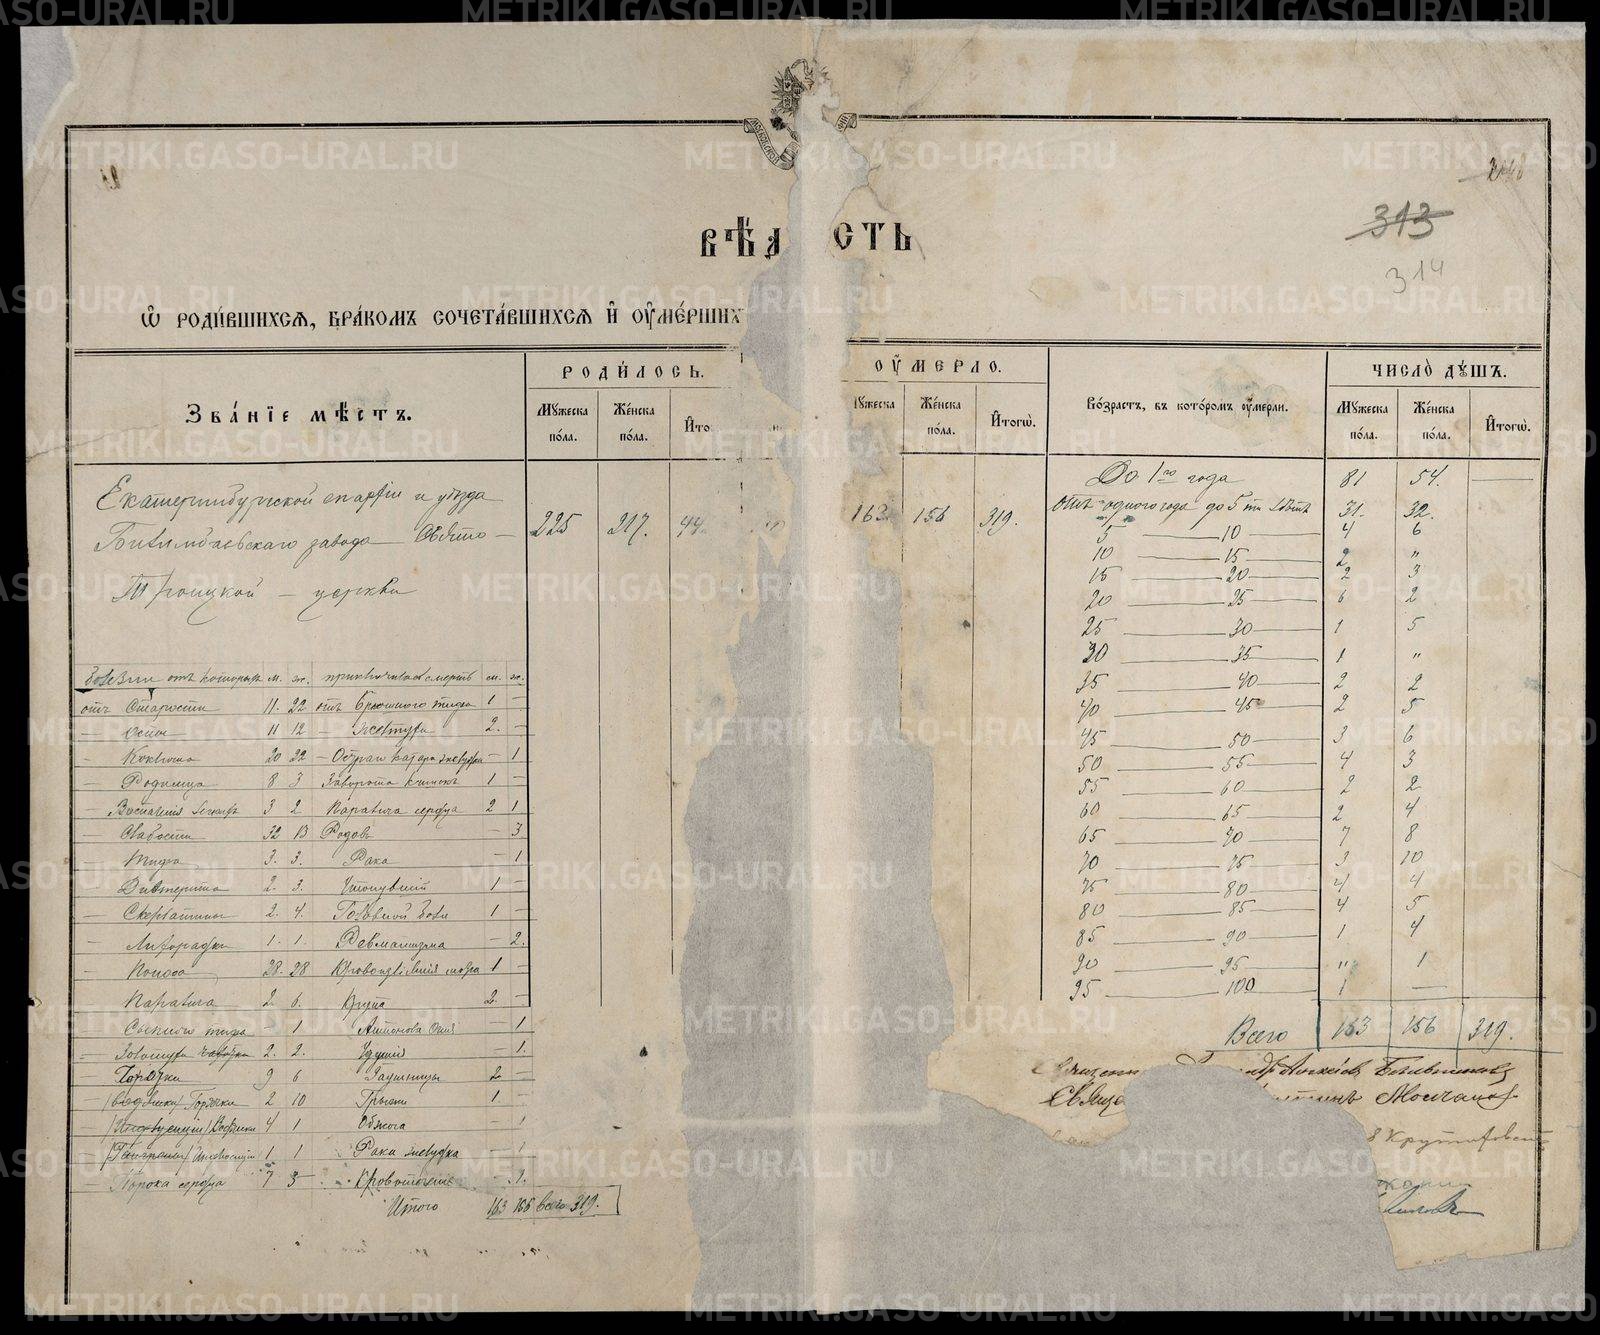 METRIKI.GASO-URAL.RU
МОСКОВСКОЙ
ВѢД СТЬ
313
314
Ѡ РОДИ́ВШИХСѦ, БРА́КОМЪ СОЧЕТА́ВШИХСѦ И҆ ОУ҆МЕ́РШИХ
ЗВА́НІЕ МѢ́СТЪ.
РОДИ́ЛОСЬ.
Мꙋ́жеска по́ла.
Же́нска по́ла.
И҆то
ОУ҆МЕРЛО.
ꙋжеска
Же́нска по́ла.
И҆тогѡ̀.
Во́зрастъ, въ кото́ромъ оу҆́мерли.
ЧИСЛО̀ ДꙊШЪ.
Мꙋ́жеска по́ла.
Же́нска по́ла.
И҆тогѡ̀.
Екатеринбургской епархіи и уѣзда
Билимбаевскаго завода Свято –
Троицкой – церкви
225 217. 44 163. 156 319.
До 1го года 81 54.
отъ одного года до 5ти лѣтъ 31. 32.
5 — 10 4 6
10 — 15 2 "
15 — 20 2 3
20 — 25 6 2
25 — 30 1 5
30 — 35 1 "
35 — 40 2 2
40 — 45 2 5
45 — 50 3 6
50 — 55 4 3
55 — 60 2 2
60 — 65 2 4
65 — 70 7 8
70 — 75 3 10
75 — 80 4 4
80 — 85 4 5
85 — 90 1 4
90 — 95 " 1
95 — 100 1 —
Всего 163 156 319.
Болѣзни отъ которыхъ м. ж. приключилась смерть м. ж.
отъ Старости 11. 22 отъ Брюшного тифа 1 –
– Оспы 11 12 – 2. –
– Коклюша 20 22 – Остраго катара желудка – 1
– Родимца 8 3 Заворота кишекъ 1 –
– Воспаленія легкихъ 3 2 Паралича сердца 2 1
– Слабости 32 13 Родовъ – 3
– Тифа 3. 3. Рака – 1
– Дифтерита 2. 3. Утонувшій 1 –
– Скарлатины 2. 4. Головной боли 1 –
– Лихорадки 1. 1. Ревматизма – 2.
– Поноса 28. 28 Кровоизліянія мозга 1 –
– Паралича 2 6. Крупа 2. –
– Сыпного тифа – 1 Антонова Огня – 1
– Золотухи 2. 2. Удушія – 1.
– Горячки 9 6 2 –
– (водянки) Горячки 2 10 Грыжи 1 –
– 4 1 Обжога – 1
– 1 1 Рака желудка – 1
– Порока сердца 7 3 – Кровотеченіе – 1.
Итого 163 156 всего 319.
Алексѣй
Свяще Молчанов